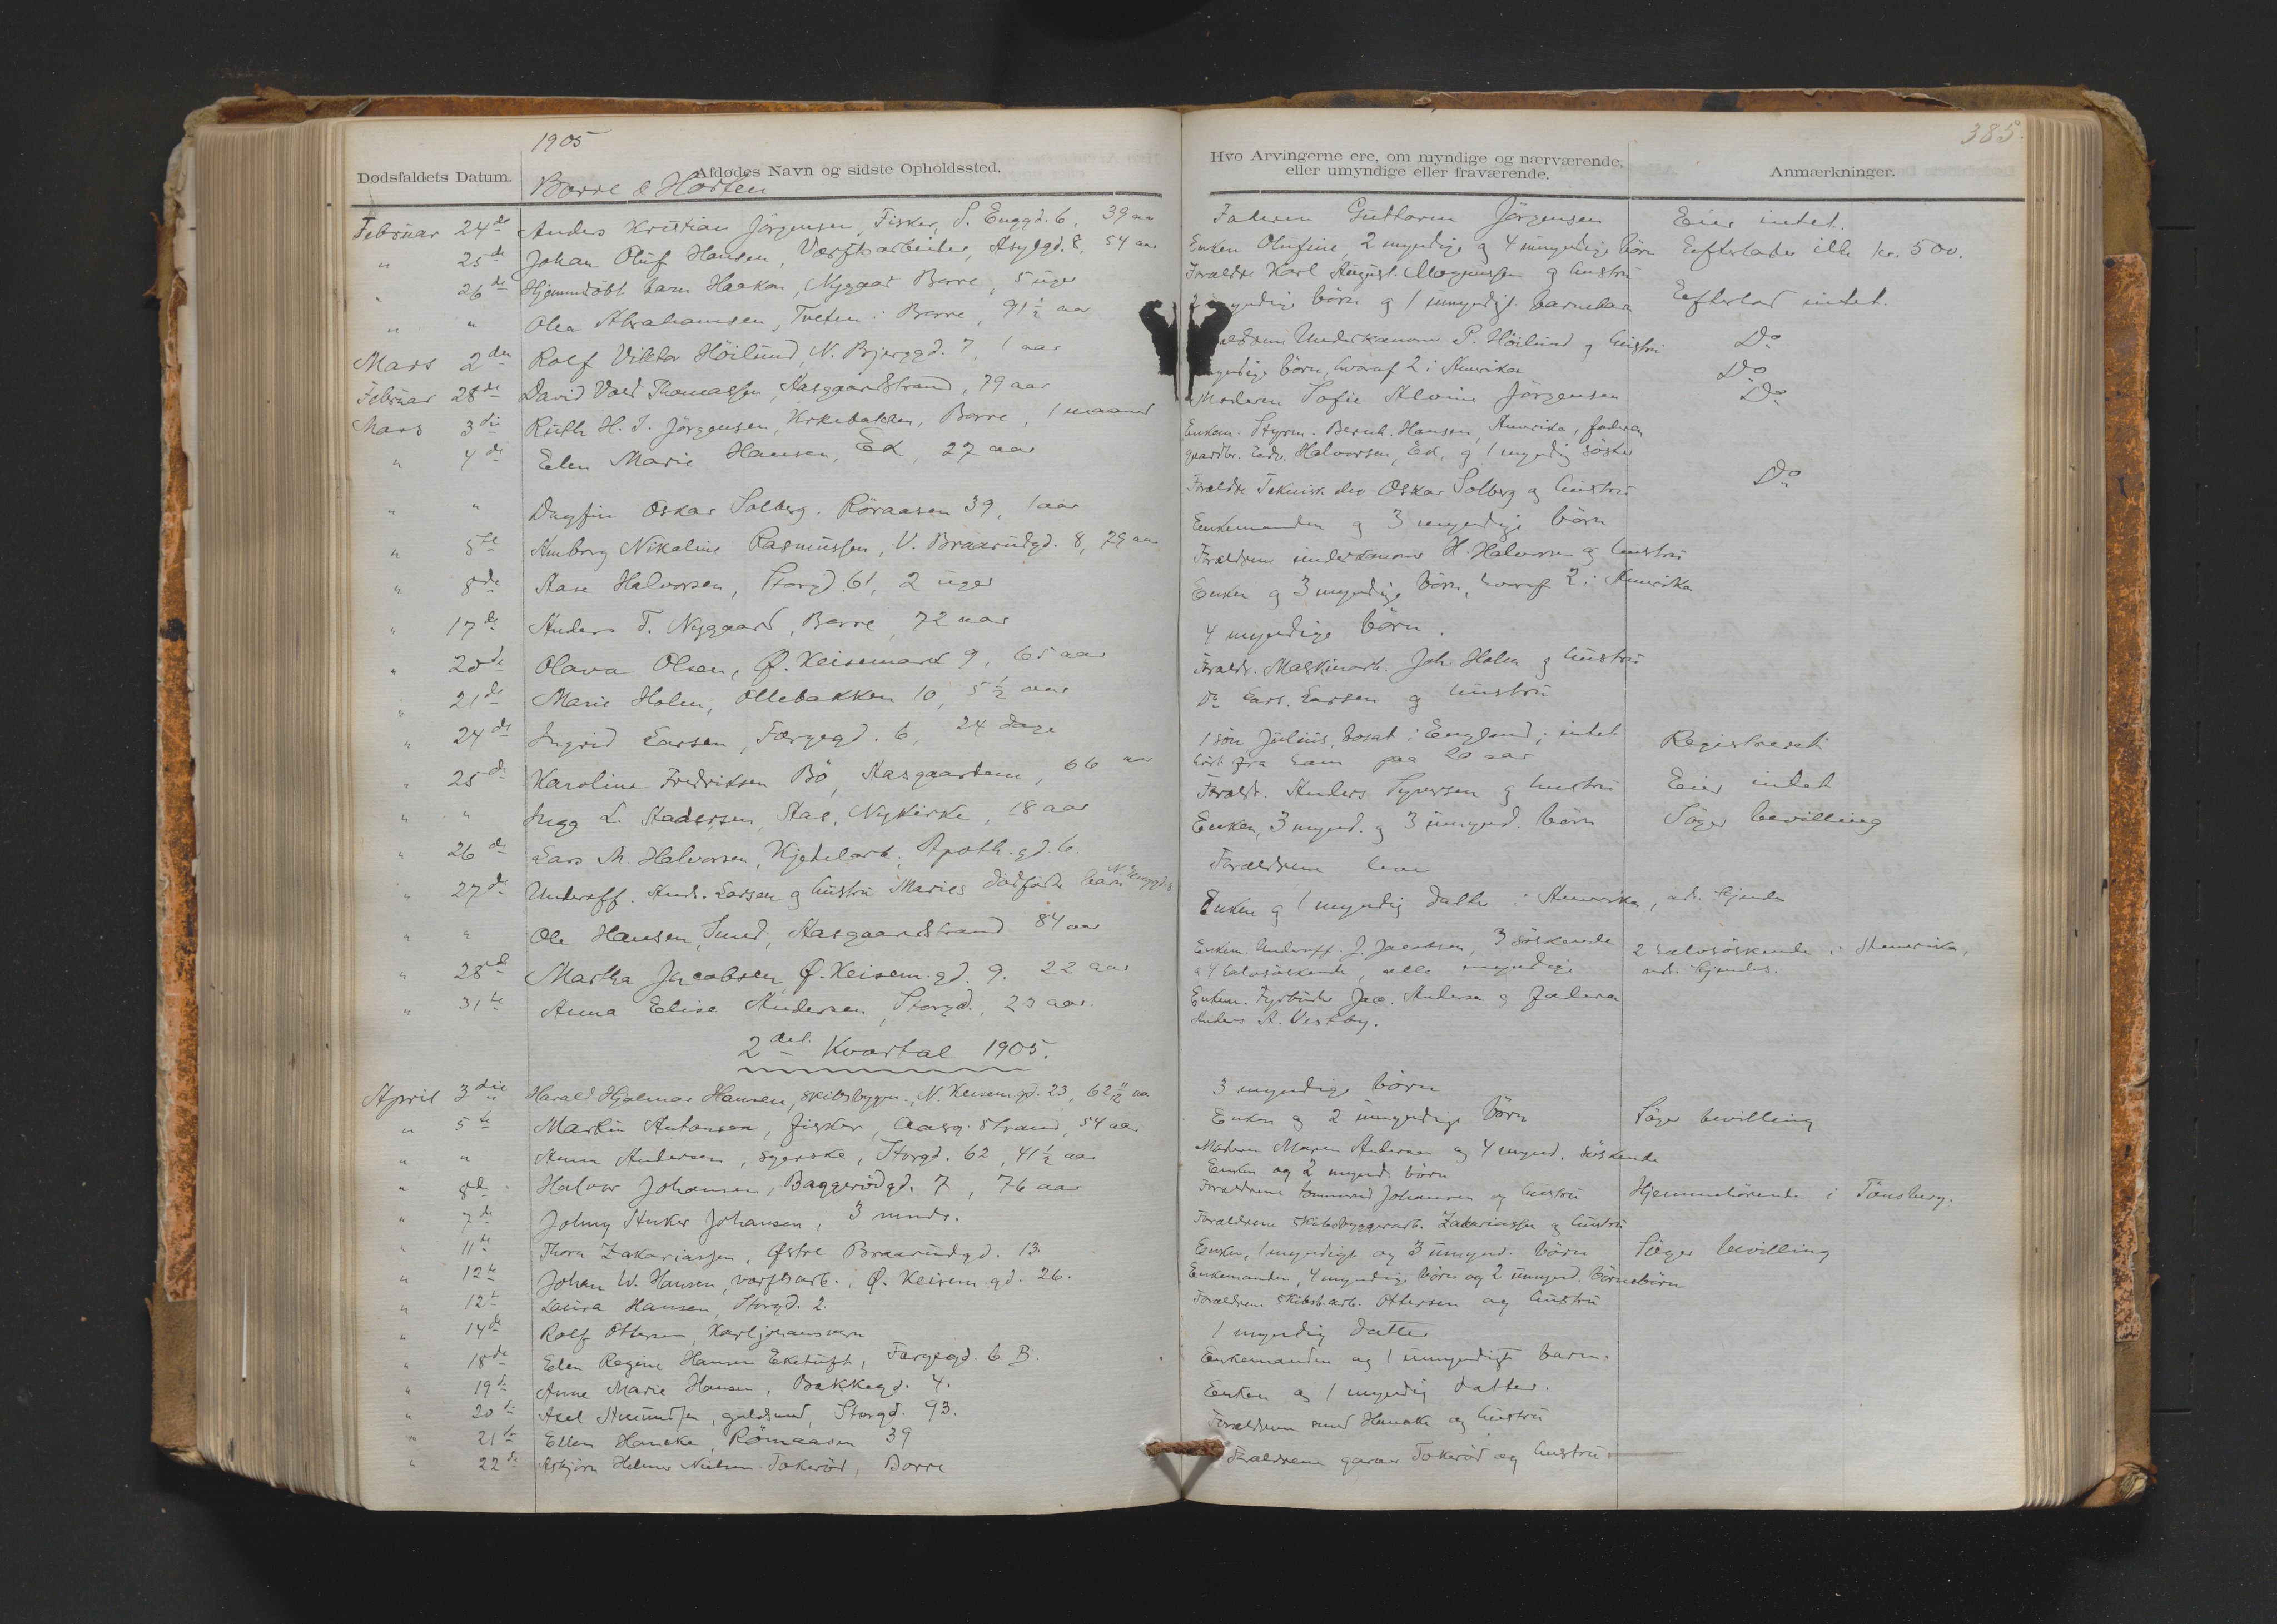 1905
385.
Dødsfaldets Datum. Afdødes Navn og sidste Opholdssted. Hvo Arvingerne ere, om myndige og nærværende, eller umyndige eller fraværende. Anmærkninger.
Borre & Horten
Februar 24de Anders Kristian Jörgensen, Fisker, S. Enggd. 6, 39 aar Faderen Guttorm Jörgensen Eier intet.
" 25de Johan Oluf Hansen, Værftsarbeider, Asylgd. 8, 54 aar Enken Olufine, 2 myndige og 4 umyndige börn Efterlader ikke kr. 500.
" 26de Hjemmedöbt barn Haakon, Nygaard Borre, 5 uger Forældre Karl August Magnussen og hustru
" " Olea Abrahamsen, Tveten i Borre, 91½ aar 2 myndige börn og 1 umyndigt barnebarn Efterlod intet.
Mars 2den Rolf Viktor Höilund, N. Bjerggd. 7, 1 aar Underkanonr P. Höilund og hustru Do
Februar 28de David Vold Thomassen, Aasgaardstrand, 79 aar myndige börn, hvoraf 2 i Amerika Do
Mars 3die Ruth H. J. Jörgensen, Kirkebakken, Borre, 1 maaned Moderen Sofie Alvine Jörgensen Do
" 4de Elen Marie Hansen, Ek, 27 aar Enkem. Styrm. Bernh. Hansen, Amerika, faderen
gaardbr. Edv. Halvorsen, Ek, og 1 myndig söster
" " Dagfin Oskar Solberg, Röraasen 39, 1 aar Forældre Teknisk elev Oskar Solberg og hustru Do
" 5te Amborg Nikoline Rasmussen, V. Braarudgd. 8, 79 aar Enkemanden og 3 myndige börn
" 8de Aase Halvorsen, Storgd. 61, 2 uger Forældrene underkanoner H. Halvorsen og hustru
" 17de Anders T. Nygaard, Borre, 72 aar Enken og 3 myndige börn, hvoraf 2 i Amerika
" 20de Olava Olsen, Ø. Keisemark 9, 65 aar 4 myndige börn.
" 21de Marie Holm, Ollebakken 10, 5½ aar Foreldr. Maskinarb. Joh. Holm og hustru
" 24de Ingrid Larsen, Færgegd. 6, 24 dage Do Lars. Larsen og hustru
" 25de Karoline Fredriksen Bö, Aasgaarden, 66 aar 1 sön Julius, bosat i England; intet Registreret
hört fra ham paa 20 aar
" " L. Aadersen, Aas, Nykirke, 18 aar Foreldr. Anders Syversen og hustru Eier intet
" 26de Lars M. Halvorsen, Kjedelarb., Apoth.gd. 6. Enken, 3 mynd. og 3 umynd. börn Söger bevilling
" 27de Underoff. Andr. Larsen og hustru Maries dödfödte barn N. Enggd. Forældrene
" " Ole Hansen, Smed, Aasgaardstrand 84 aar Enken og 1 myndig datter i Amerika,
" 28de Martha Jacobsen, Ø. Keisem.gd. 9. 22 aar Enkem. Underoff. J. Jacobsen, 3 söskende 2 halvsöskende i Amerika,
og 4 halvsöskende, alle myndige
" 31te Anna Elise Andersen, Storgd., 23 aar. Enkem. Fyrböder Jac. Andersen og faderen
Anders A. Vestby.
2det Kvartal 1905.
April 3die Harald Hjalmar Hansen, skibsbyggm., N. Keisemgd. 23, 62 aar 3 myndige börn
" 5te Martin Antonsen, fisker, Aasg. strand, 54 aar Enken og 2 umyndige börn Söger bevilling
" " Anna Andersen, syerske, Storgd. 62, 41½ aar Moderen Maren Andersen og 4 mynd. söskende
" 8de Halvor Johansen, Baggerödgd. 7, 76 aar Enken og 2 mynd. börn
" 7de Johny Anker Johansen, 3 mndr. Forældrene tömmermd Johansen og hustru Hjemmehörende i Tönsberg.
" 11te Thora Zakariassen, Østre Braarudgd. 13. Forældrene skibsbyggerarb. Zakariassen og hustru
" 12te Johan W. Hansen, værftsarb., Ø. Keisem.gd. 26. Enken, 1 myndigt og 3 umynd. börn Söger bevilling
" 12te Laura Hansen, Storgd. 2. Enkemanden, 4 myndige börn og 2 umynd. börnebörn
" 14de Rolf Ottersen, Karljohansvern Forældrene skibsb.arb. Ottersen og hustru
" 18de Elen Regine Hansen Eketuft, Færgegd. 6 B. 1 myndig datter
" 19de Anne Marie Hansen, Bakkegd. 4. Enkemanden og 1 umyndigt barn.
" 20de Axel Amundsen, guldsmed, Storgd. 93. Enken og 1 myndig datter.
" 21de Ellen Hancke, Römaasen 39 Forældrene smed Hancke og hustru
" 22de Asbjörn Helmer Nielsen Tokeröd, Borre Forældrene garver Tokeröd og hustru